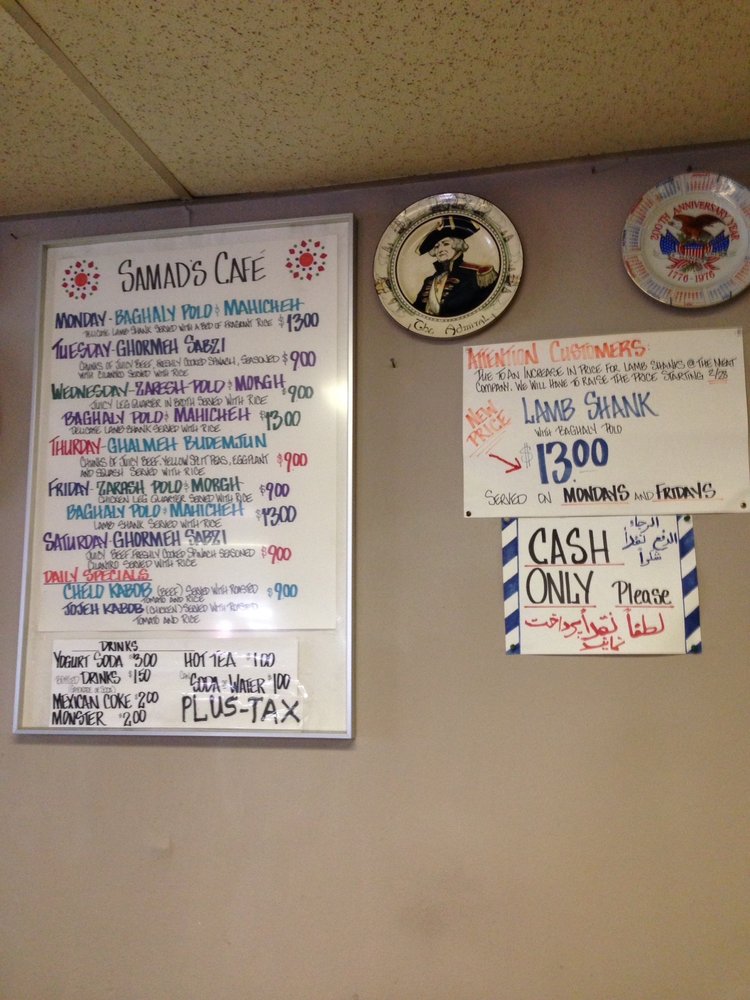 SAMAD'S CAFÉ
MONDAY - BAGHALY POLO & MAHICHEH
DELICATE LAMB SHANK SERVED WITH A BED OF FRAGRANT RICE $1300
TUESDAY - GHORMEH SABZI
CHUNKS OF JUICY BEEF, FRESHLY COOKED SPINACH, SEASONED $900
WITH CILANTRO SERVED WITH RICE
WEDNESDAY - ZARESH POLO & MORGH
JUICY LEG QUARTER IN BROTH SERVED WITH RICE $900
BAGHALY POLO & MAHICHEH $1300
DELICATE LAMB SHANK SERVED WITH RICE
THURDAY - GHALMEH BUDEMJUN
CHUNKS OF JUICY BEEF, YELLOW SPLIT PEAS, EGGPLANT $900
AND SQUASH SERVED WITH RICE
FRIDAY - ZARASH POLO & MORGH $900
CHICKEN LEG QUARTER SERVED WITH RICE
BAGHALY POLO & MAHICHEH $1300
LAMB SHANK SERVED WITH RICE
SATURDAY - GHORMEH SABZI
JUICY BEEF FRESHLY COOKED SPINACH SEASONED $900
CILANTRO SERVED WITH RICE
DAILY SPECIALS
CHELO KABOB (BEEF) SERVED WITH ROASTED $900
TOMATO AND RICE
JOJEH KABOB (CHICKEN) SERVED WITH ROASTED
TOMATO AND RICE
DRINKS
YOGURT SODA $3.00 HOT TEA $1.00
DRINKS $1.50
SODA & WATER $1.00
MEXICAN COKE $2.00
MONSTER $2.00
PLUS-TAX
The Admiral
200TH ANNIVERSARY YEAR
1776-1976
ATTENTION CUSTOMERS:
DUE TO AN INCREASE IN PRICE FOR LAMB SHANKS @ THE MEAT
COMPANY. WE WILL HAVE TO RAISE THE PRICE STARTING 2/28
NEW PRICE
LAMB SHANK
WITH BAGHALY POLO
$13.00
SERVED ON MONDAYS AND FRIDAYS
CASH
ONLY Please
الرجاء
الدفع نقداً
شكراً
لطفاً نقداً پرداخت
نمایید